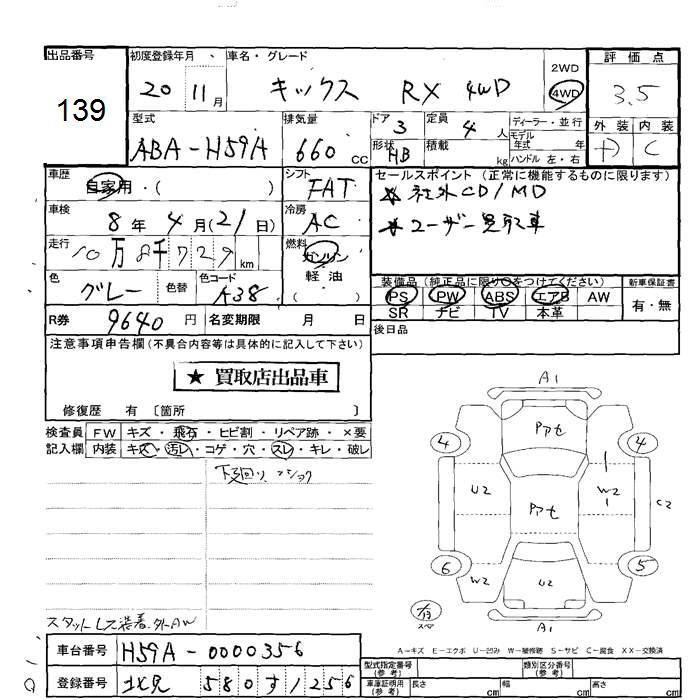 出品番号
139
初度登録年月
20 11月
車名・グレード
キックス RX 4WD
2WD
4WD
評価点
3.5
外装 内装
C
型式
ABA-H59A
排気量
660 cc
ドア 3
形状 HB
定員 4 人
積載 kg
ディーラー・並行
モデル年式 年
ハンドル 左・右
車歴
自家用・( )
シフト
FAT
セールスポイント (正常に機能するものに限ります)
★社外CD/MD
★ユーザー買取車
車検
8年4月(21日)
冷房
AC
走行
10万8千729km
燃料
ガソリン
軽油
( )
色
グレー
色替
色コード
A38
装備品 (純正品に限り○をつけてください)
PS PW ABS エアB AW
SR ナビ TV 本革
新車保証書
有・無
R券
9640円
名変期限 月 日
後日品
注意事項申告欄(不具合内容等は具体的に記入して下さい)
★ 買取店出品車
修復歴 有 〔箇所 〕
検査員記入欄
FW キズ・飛石・ヒビ割・リペア跡・×要
内装 キズ・汚レ・コゲ・穴・スレ・キレ・破レ
下廻り、
スタットレス装着、外AW
A1
4
4
アセ
U2
W2
アセ
C2
6
5
W2
U2
スペア
A1
A-キズ E-エクボ U-凹み W-補修跡 S-サビ C-腐食 XX-交換済
車台番号
H59A-0000356
登録番号
北見 580 す 1256
型式指定番号(参考)
類別区分番号(参考)
車庫証明用(参考)
長さ cm
幅 cm
高さ cm